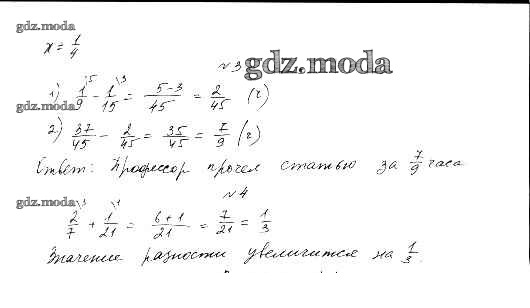 gdz.moda
x = 1/4
№3
gdz.moda
1) 1/9 \5 - 1/15 \3 = 5-3/45 = 2/45 (г)
gdz.moda
2) 37/45 - 2/45 = 35/45 = 7/9 (г)
Ответ: Профессор прочел статью за 7/9 часа
gdz.moda
№4
2/7 \3 + 1/21 \1 = 6+1/21 = 7/21 = 1/3
Значение разности увеличится на 1/3.